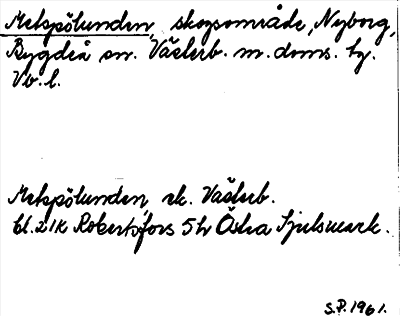 Metspölunden, skogsområde, Nyborg,
Bygdeå sn. Västerb. m. doms. tg.
Vb. l.
Metspölunden, ek. Västerb.
bl. 21K Robertsfors 5h Östra Sjulsmark.
S.P. 1961.